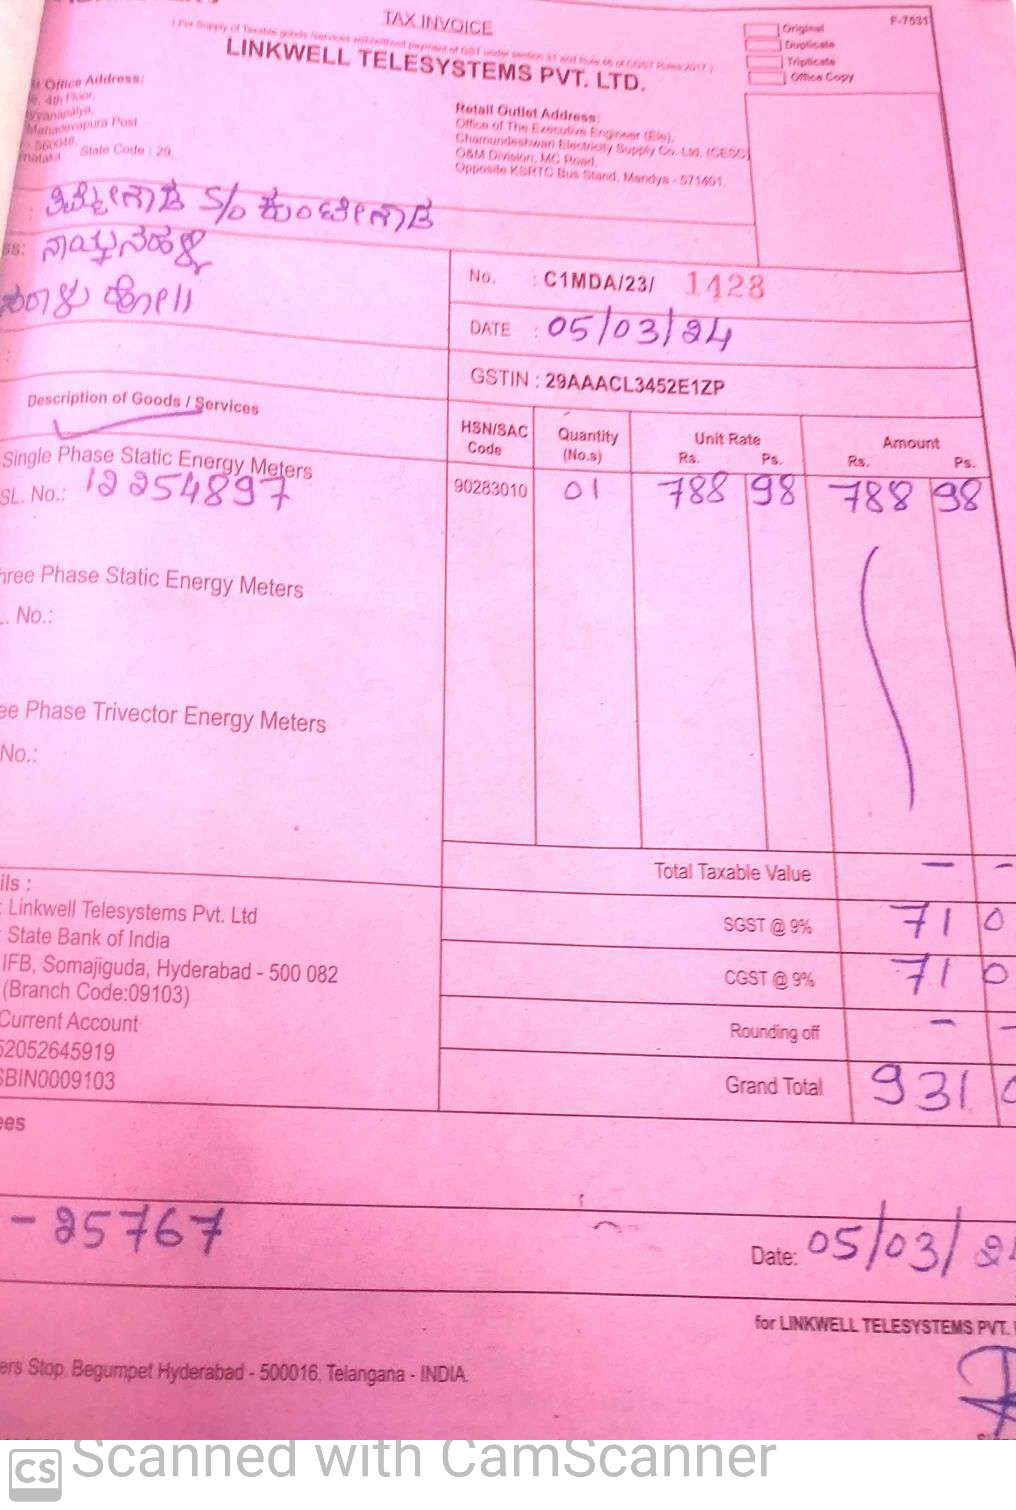 TAX INVOICE
F-7531
( For Supply of Taxable goods /services with/without payment of GST under section 31 and Rule 46 of CGST Rules 2017 )
LINKWELL TELESYSTEMS PVT. LTD.
Original
Duplicate
Triplicate
Office Copy
Office Address:
4th Floor,
Mahadevapura Post
560048,
State Code : 29,
Retail Outlet Address:
Office of The Executive Engineer (Ele),
Chamundeshwari Electricity Supply Co. Ltd. (CESC)
O&M Division, MC Road,
Opposite KSRTC Bus Stand, Mandya - 571401.
ತಿಮ್ಮೇಗೌಡ S/o ಕುಂಟೇಗೌಡ
ss:
No. : C1MDA/23/ 1428
DATE : 05/03/24
GSTIN : 29AAACL3452E1ZP
Description of Goods / Services
HSN/SAC Code
Quantity (No.s)
Unit Rate Rs. Ps.
Amount Rs. Ps.
Single Phase Static Energy Meters
SL. No.: 12254897
90283010 01 788 98 788 98
hree Phase Static Energy Meters
. No.:
ee Phase Trivector Energy Meters
No.:
Total Taxable Value - -
SGST @ 9% 71 0
CGST @ 9% 71 0
Rounding off - -
Grand Total 931 0
ils :
: Linkwell Telesystems Pvt. Ltd
State Bank of India
IFB, Somajiguda, Hyderabad - 500 082
(Branch Code:09103)
Current Account
52052645919
SBIN0009103
ees
- 25767
Date: 05/03/24
for LINKWELL TELESYSTEMS PVT.
ers Stop, Begumpet Hyderabad - 500016. Telangana - INDIA.
CS Scanned with CamScanner